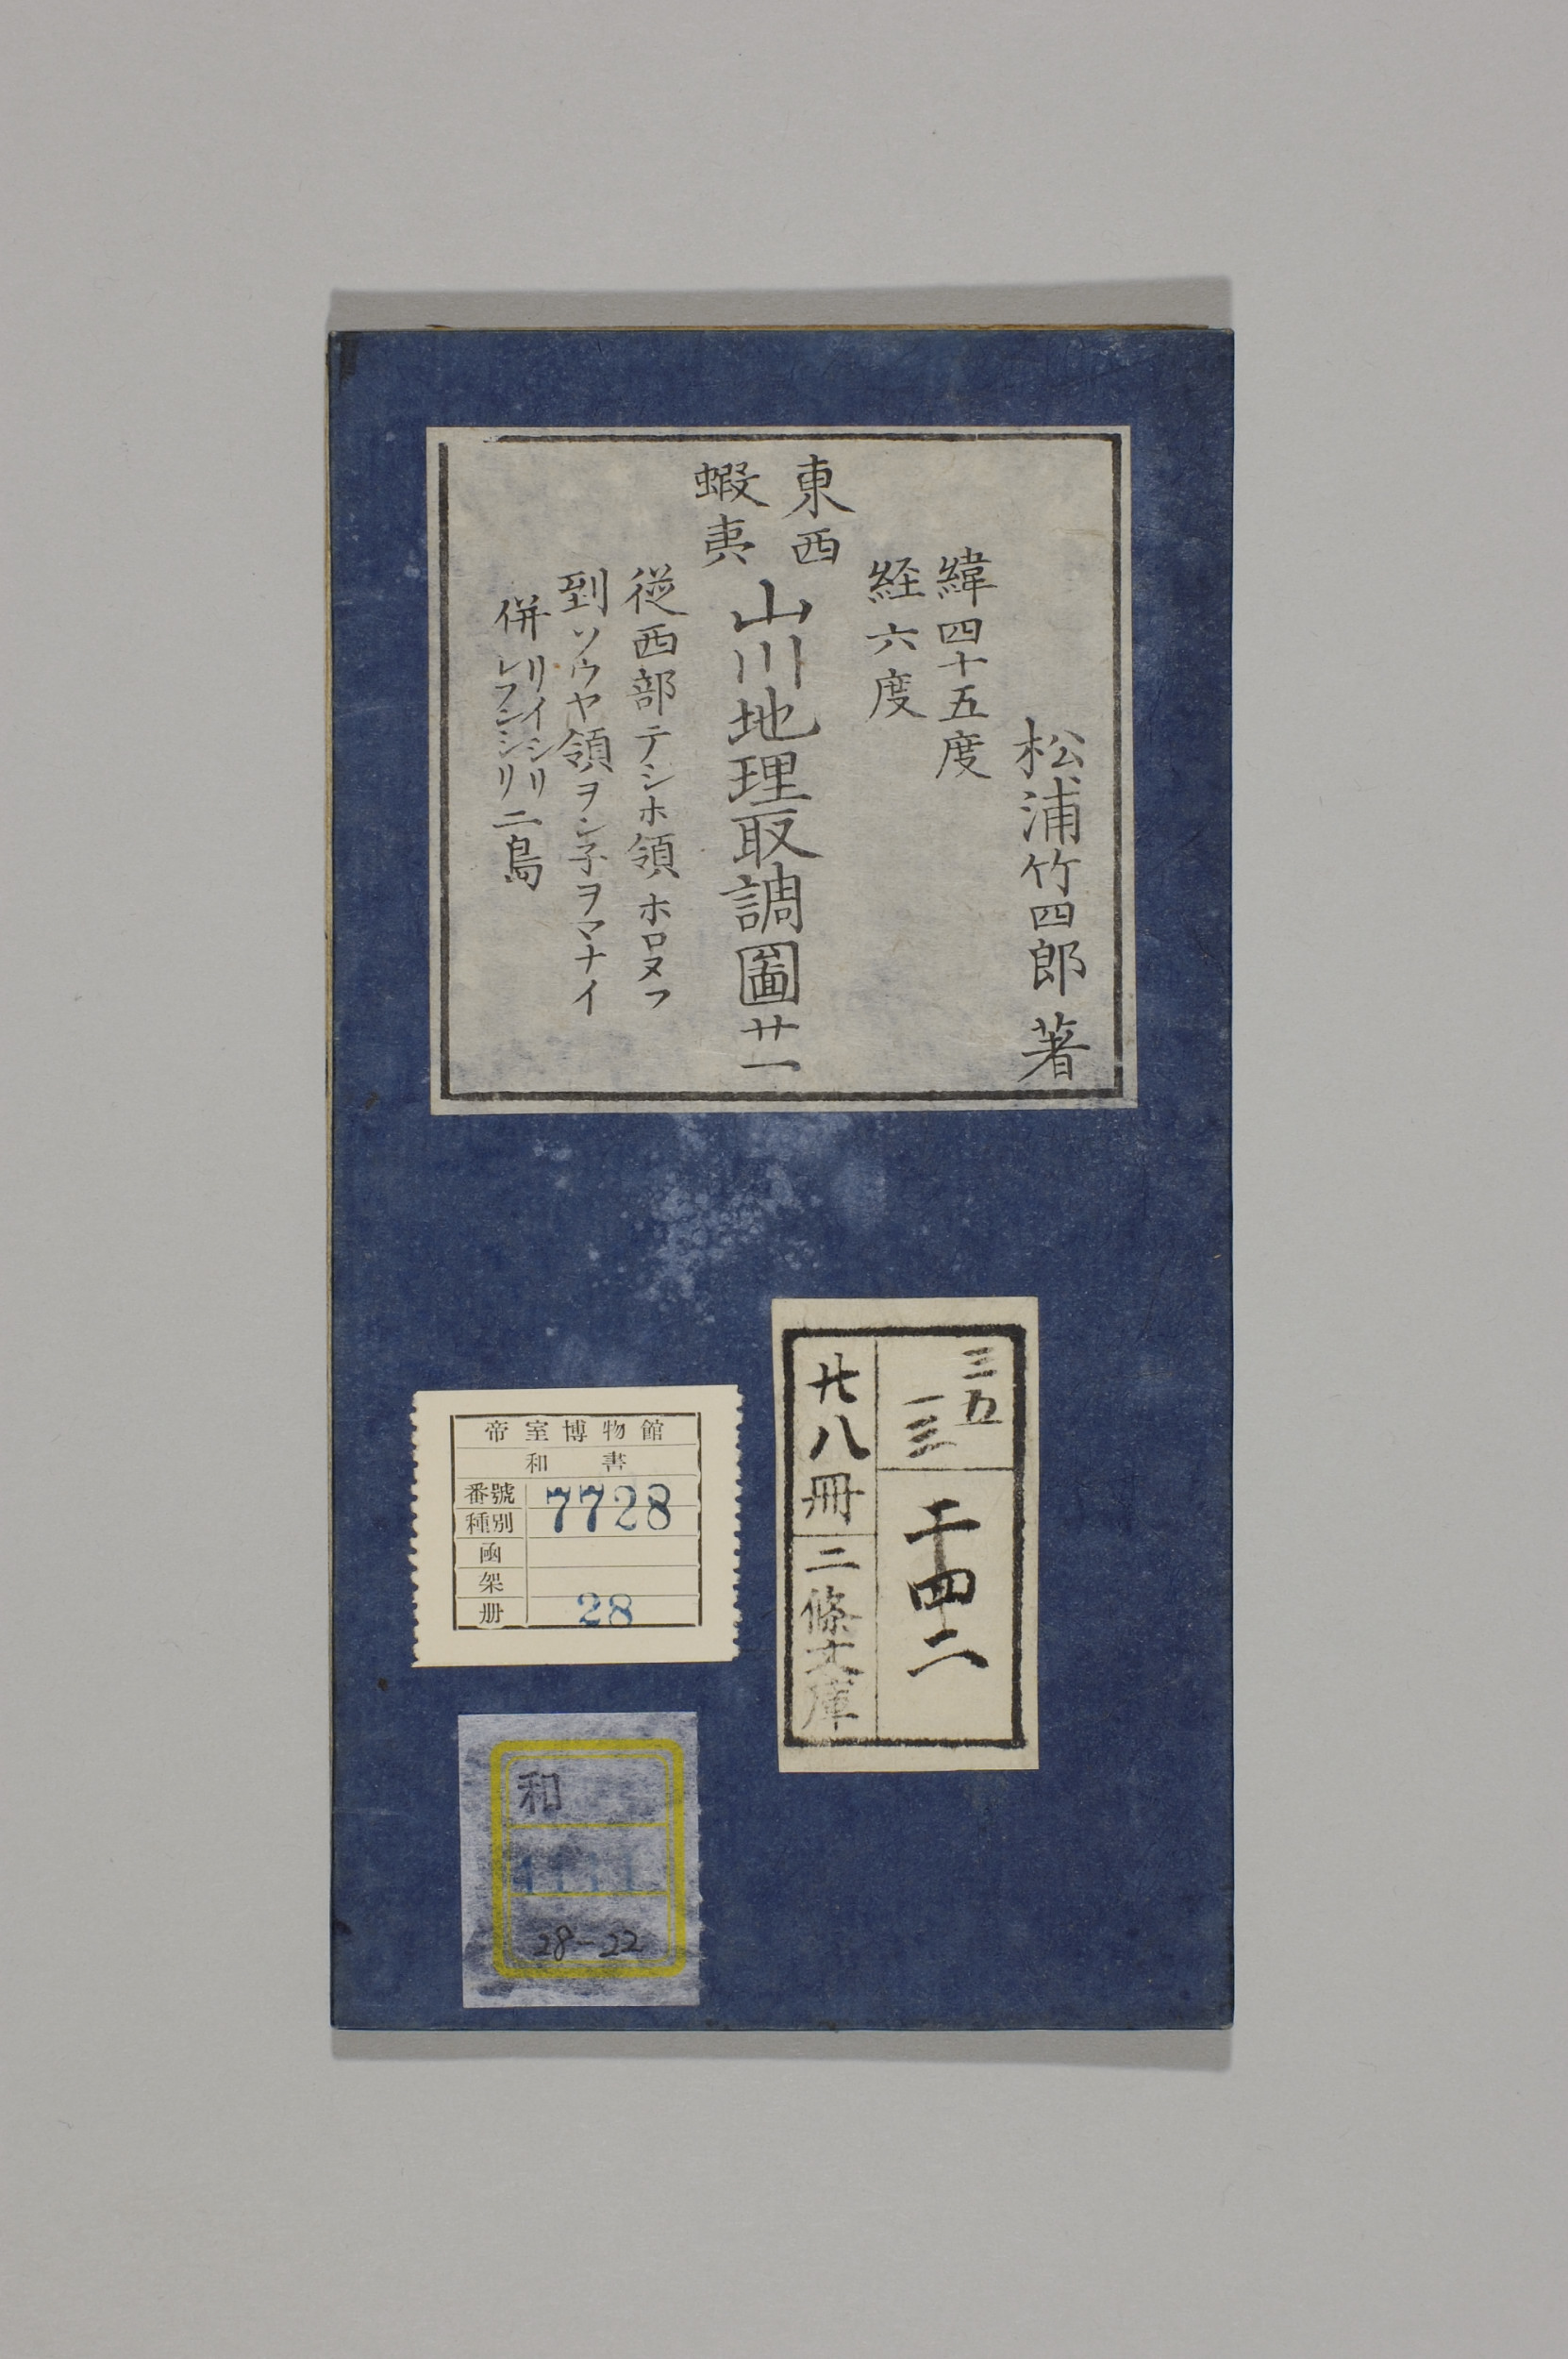 松浦竹四郎 著
緯四十五度
経六度
東西
蝦夷
山川地理取調圖 廿一
従西部テシホ領ホロヌフ
到ソウヤ領ヲシ子ヲマナイ
併リイシリレフンシリ二島
三五
一三
千四二
廿八冊
二條文庫
帝室博物館
和書
番號 7728
種別
函
架
册 28
和
28-22